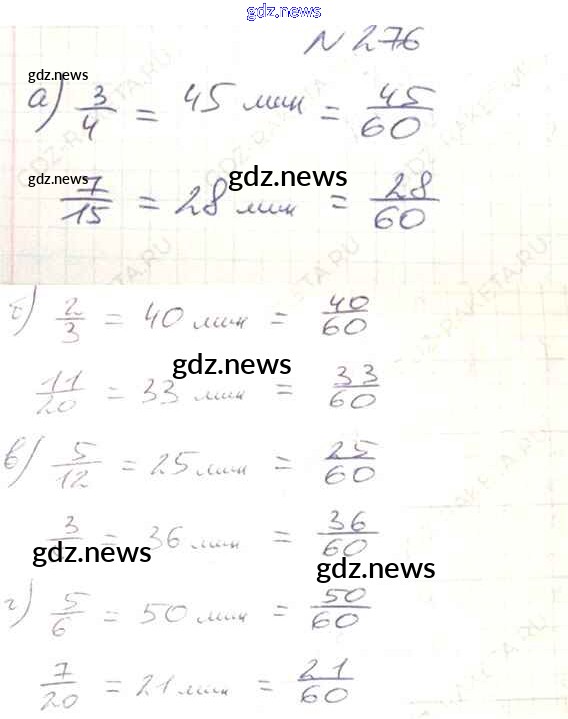 gdz.news
N 276
gdz.news
а) 3/4 = 45 мин = 45/60
gdz.news gdz.news
7/15 = 28 мин = 28/60
б) 2/3 = 40 мин = 40/60
gdz.news
11/20 = 33 мин = 33/60
в) 5/12 = 25 мин = 25/60
3 = 36 мин = 36/60
gdz.news gdz.news
г) 5/6 = 50 мин = 50/60
7/20 = 21 мин = 21/60